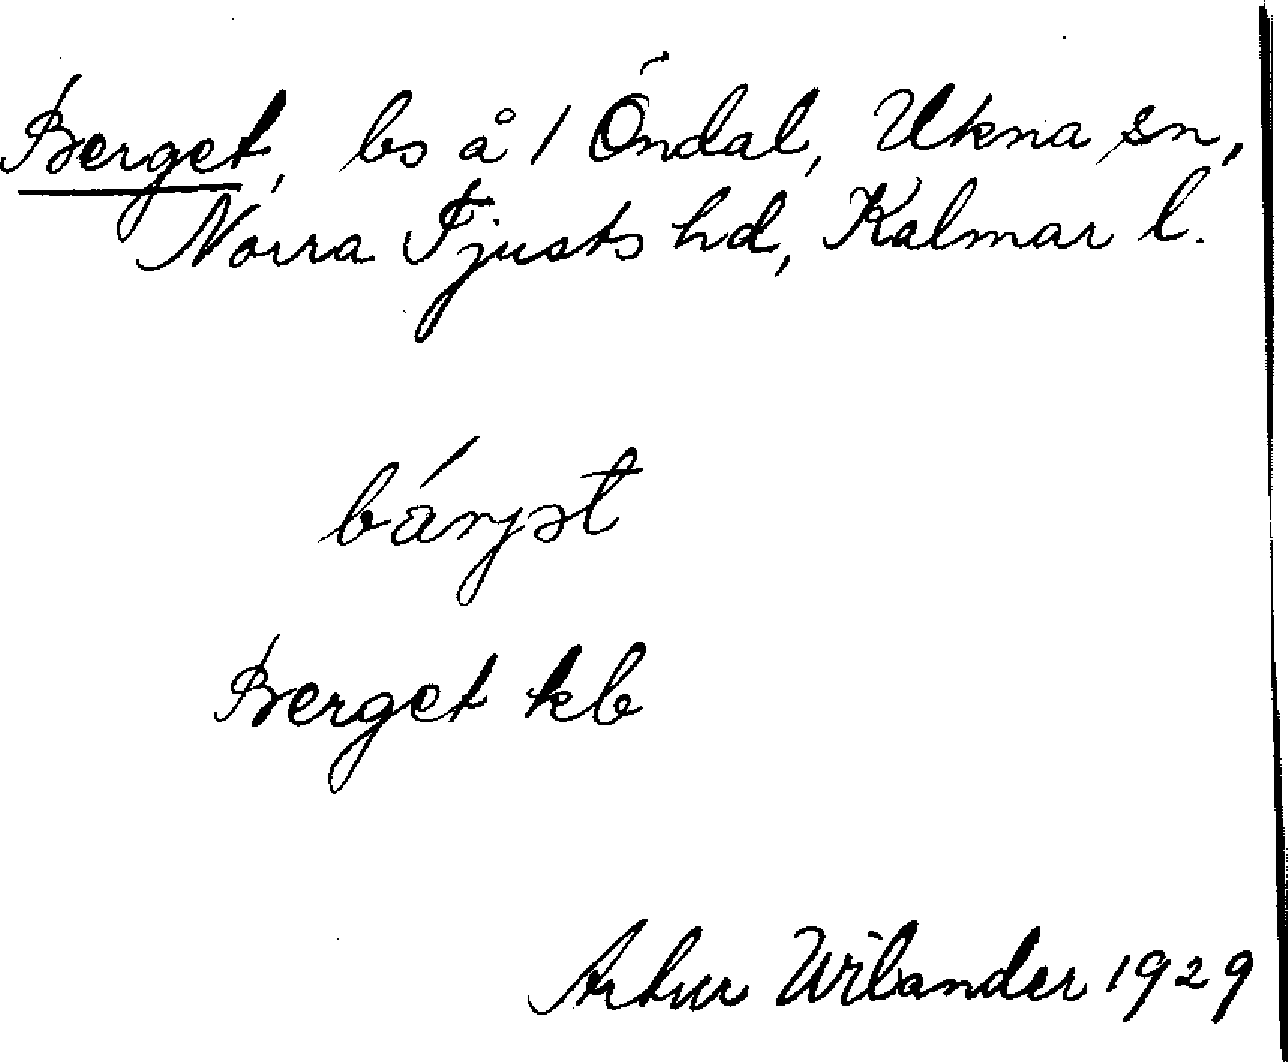 Berget, bs å 1 Öndal, Ukna sn,
Norra Tjusts hd, Kalmar l.
bárjət
Berget kb
Artur Wilander 1929